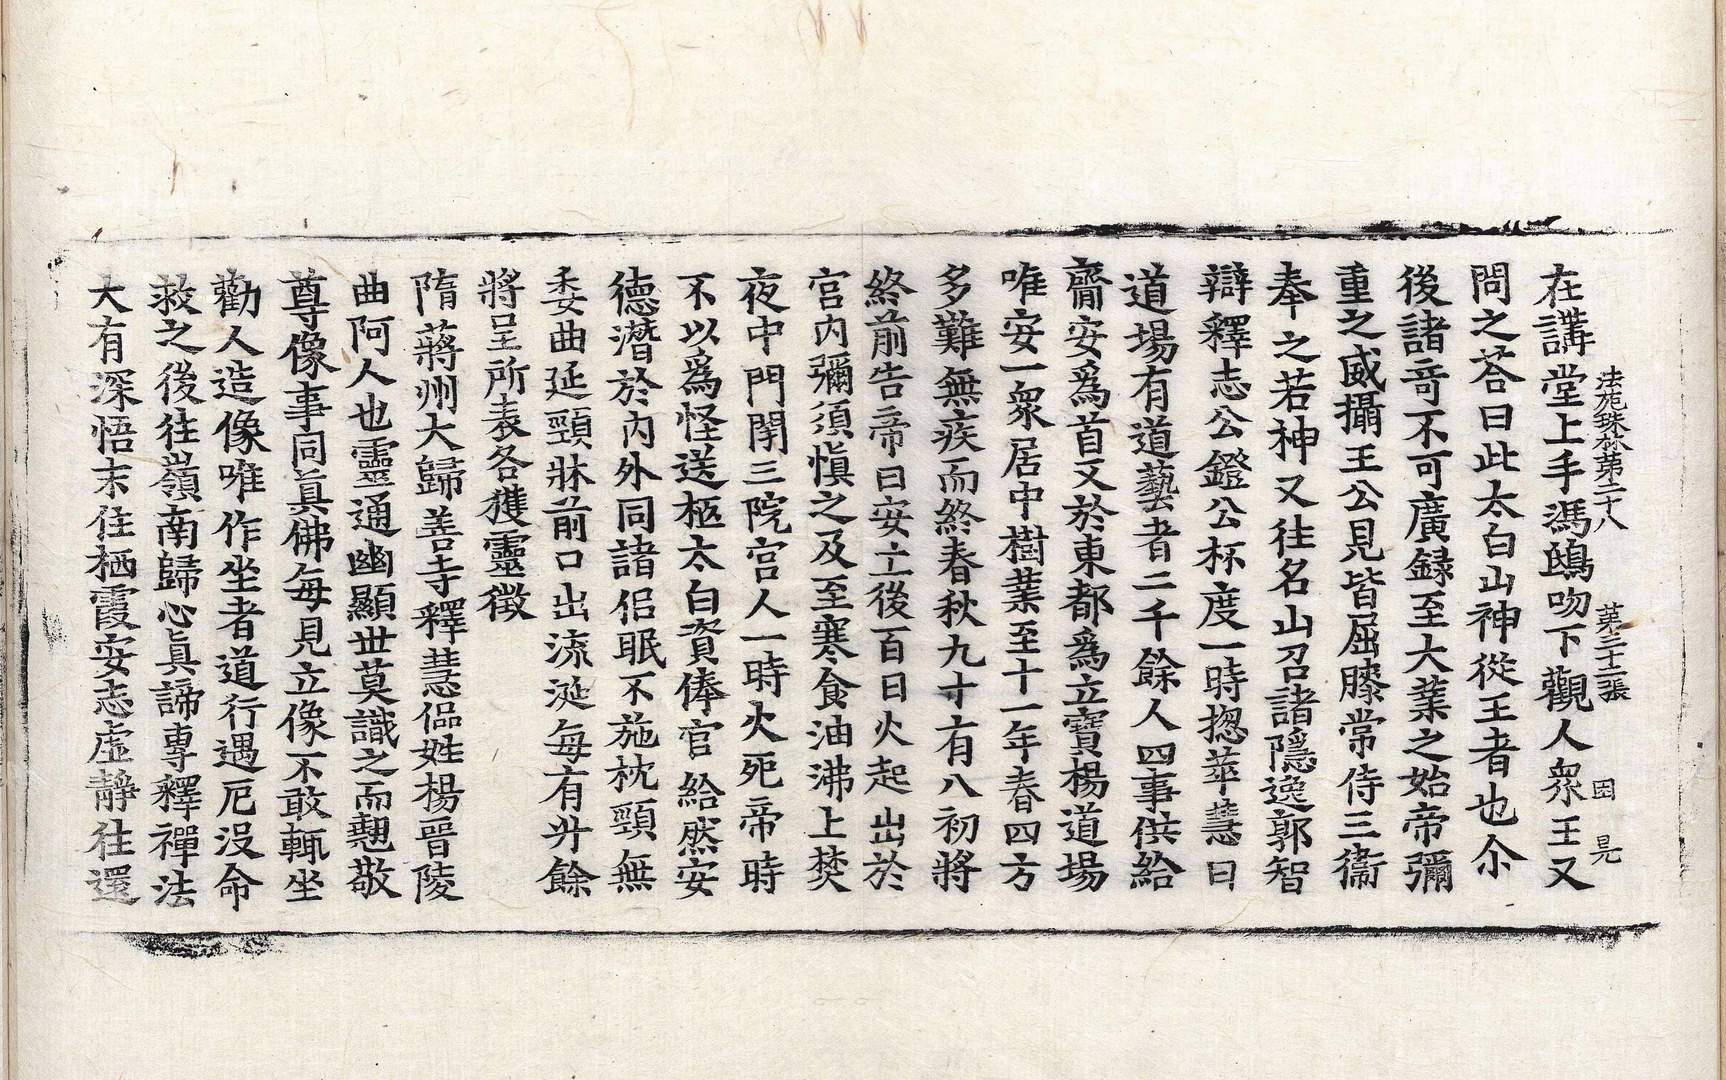 法苑珠林第二十八　第三十二張　因　晃
在講堂上手馮鴟吻下觀人衆王又
問之荅曰此太白山神從王者也尒
後諸竒不可廣録至大業之始帝彌
重之威攝王公見皆屈膝常侍三衞
奉之若神又往名山召諸隱逸郭智
辯釋志公鐙公杯度一時揔萃慧日
道場有道藝者二千餘人四事供給
齋安爲首又於東都爲立寶楊道場
唯安一衆居中樹業至十一年春四方
多難無疾而終春秋九十有八初將
終前告帝曰安亡後百日火起出於
宮内彌須愼之及至寒食油沸上焚
夜中門閇三院宮人一時火死帝時
不以爲怪送柩太白資俸官給然安
德潛於内外同諸侶眠不施枕頸無
委曲延頸牀前口出流涎每有升餘
將呈所表各獲靈徵
隋蔣州大歸善寺釋慧偘姓楊晉陵
曲阿人也靈通幽顯世莫識之而翹敬
尊像事同眞佛每見立像不敢輒坐
勸人造像唯作坐者道行遇厄没命
救之後往嶺南歸心眞諦專釋禪法
大有深悟末住栖霞安志虛靜往還